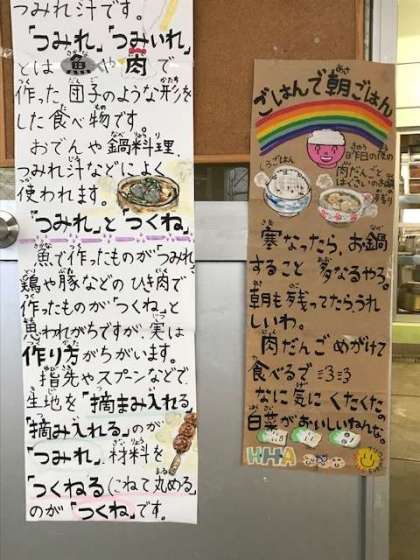 つみれ汁です。
「つみれ」「つみいれ」
とは魚や肉で
作った団子のような形を
した食べ物です。
おでんや鍋料理、
つみれ汁などによく
使われます。
「つみれ」と「つくね」
魚で作ったものが「つみれ」
鶏や豚などのひき肉で
作ったものが「つくね」と
思われがちですが、実は
作り方がちがいます。
指先やスプーンなどで、
生地を「摘まみ入れる」
「摘み入れる」のが
「つみれ」、材料を
「つくねる(こねて丸める)」
のが「つくね」です。
ごはんで朝ごはん
昨日の夜の
肉だんごと
はくさいのお鍋
残り
白ごはん
寒なったら、お鍋
すること 多なるやろ。
朝も残ってたら、うれ
しいわ。
肉だんごめがけて
食べるで
なに気に くたくたの
白菜がおいしいねんな。
HHA